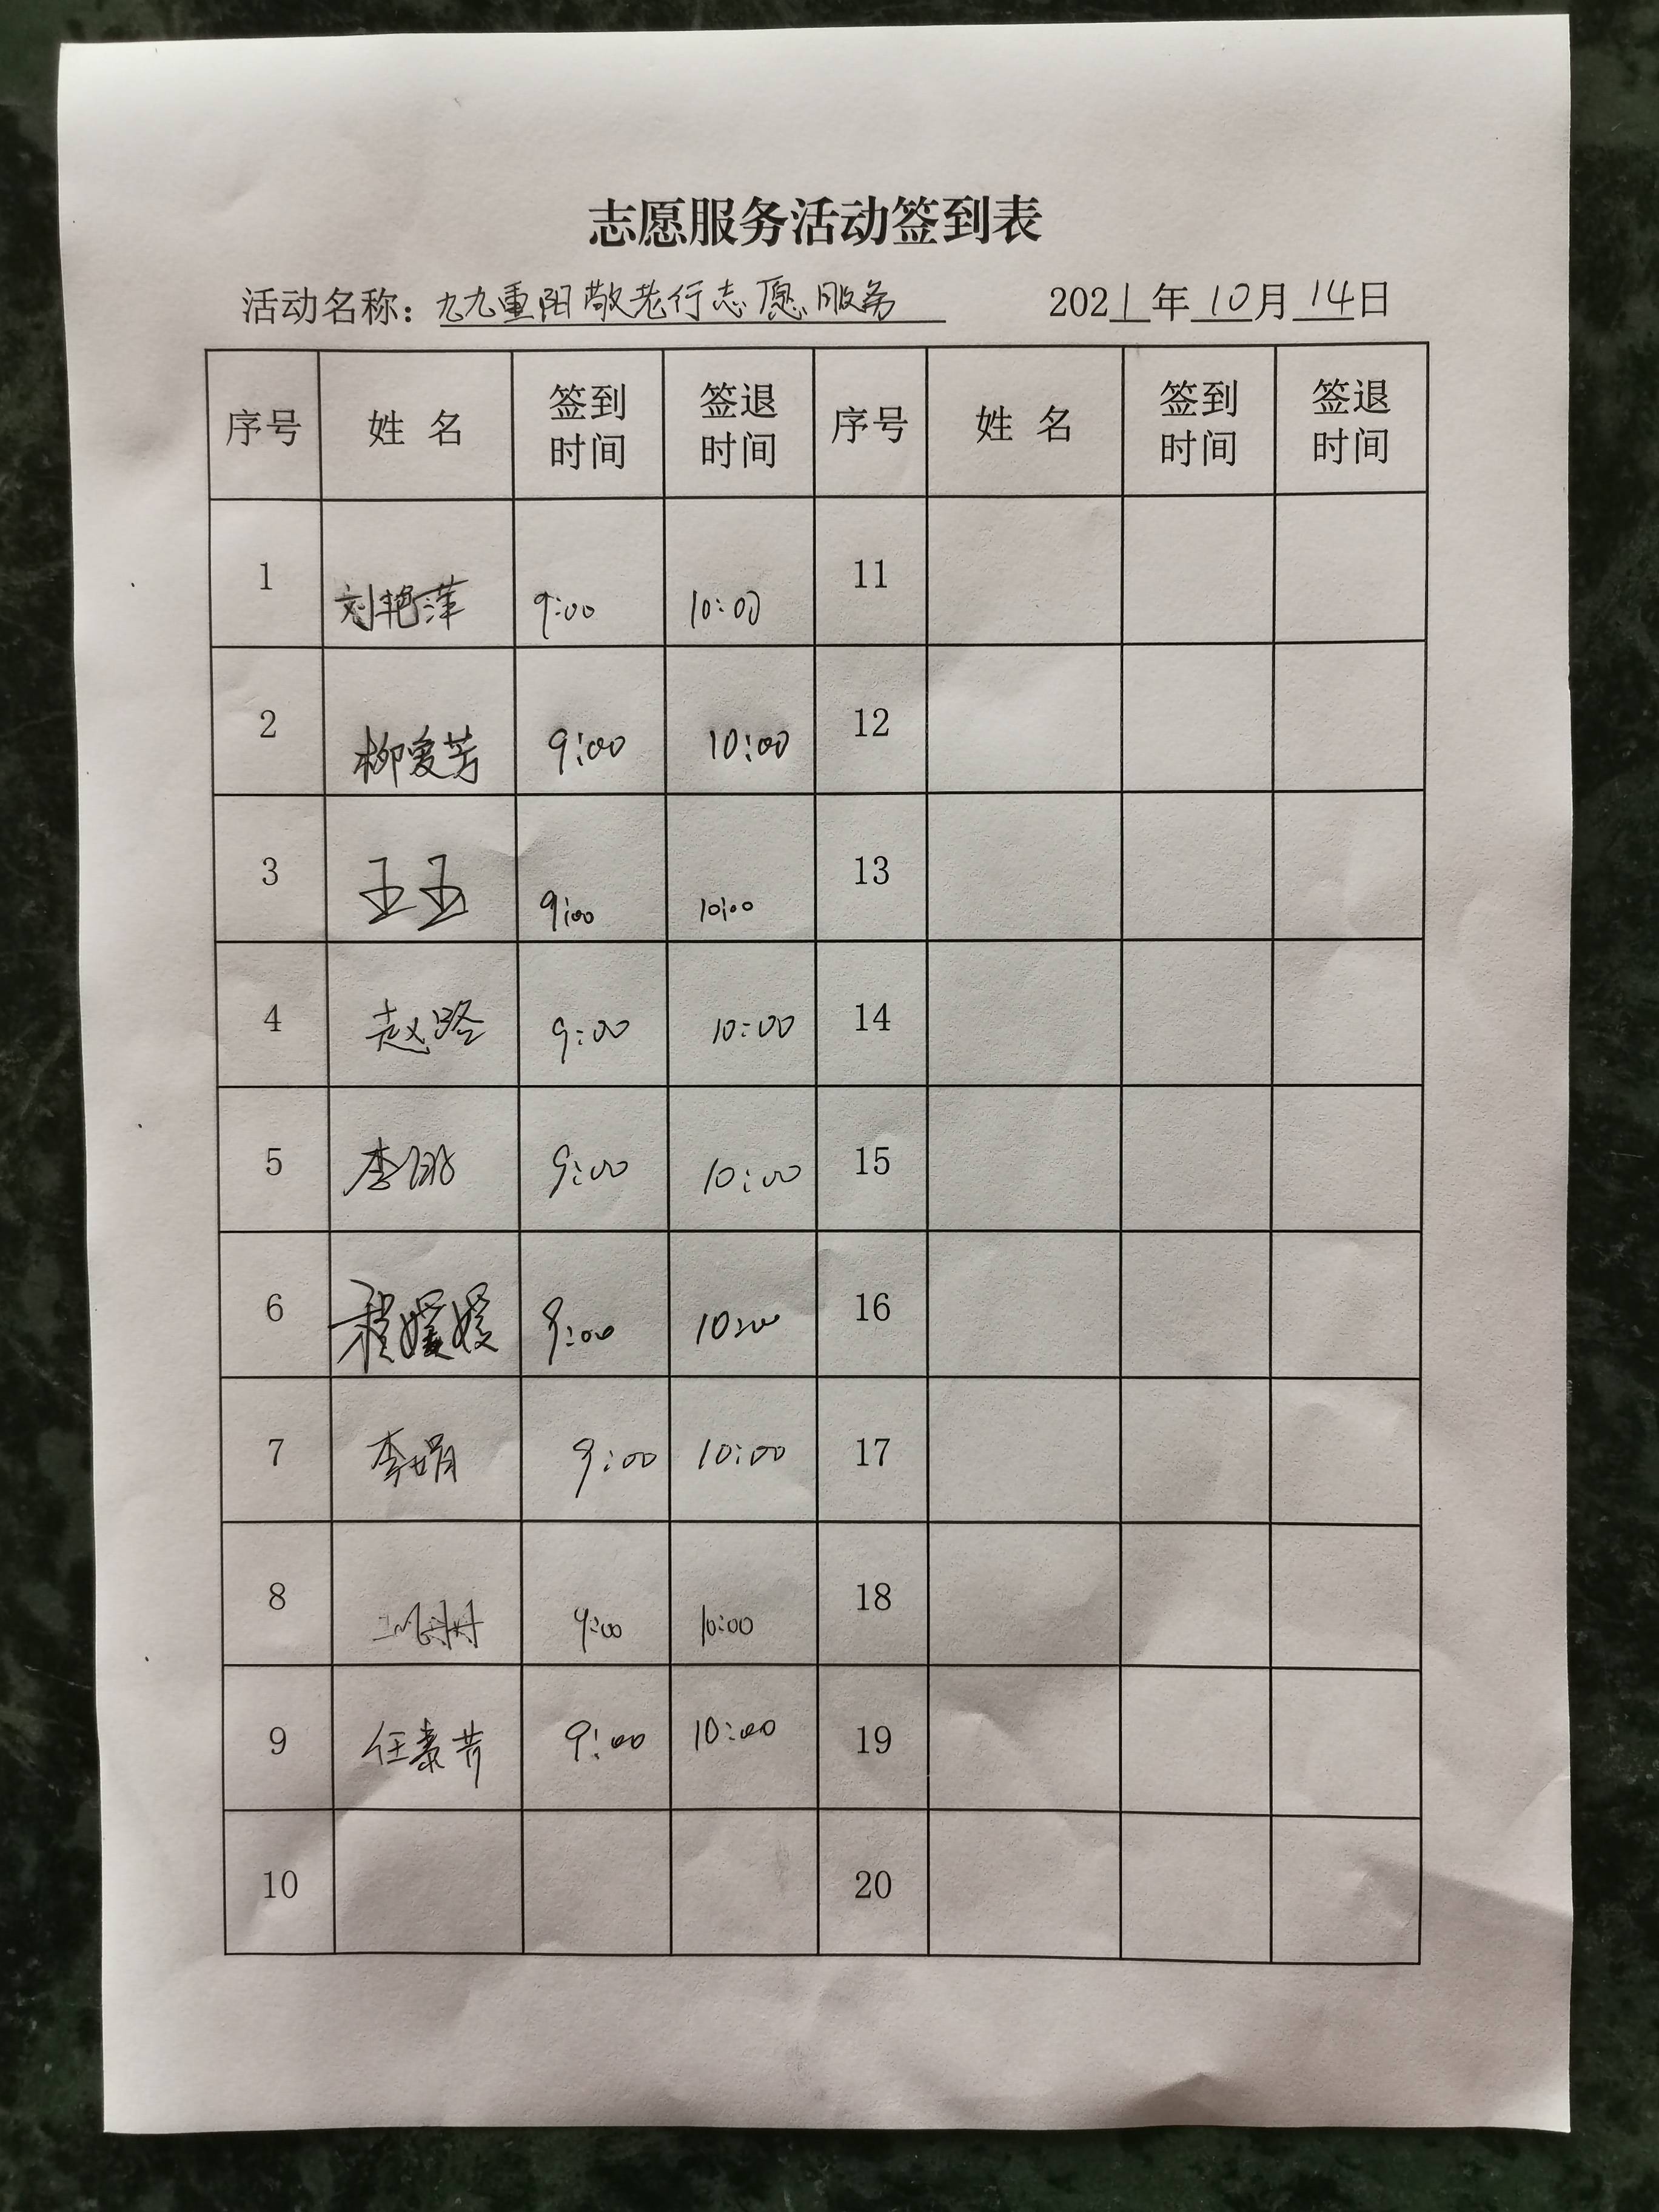 志愿服务活动签到表
活动名称：九九重阳敬老行志愿服务 2021年10月14日
序号 姓名 签到时间 签退时间 序号 姓名 签到时间 签退时间
1 刘艳萍 9:00 10:00 11
2 柳爱芳 9:00 10:00 12
3 王玉 9:00 10:00 13
4 赵路 9:00 10:00 14
5 李 9:00 10:00 15
6 程媛媛 9:00 10:00 16
7 李娟 9:00 10:00 17
8 9:00 10:00 18
9 任素芳 9:00 10:00 19
10 20